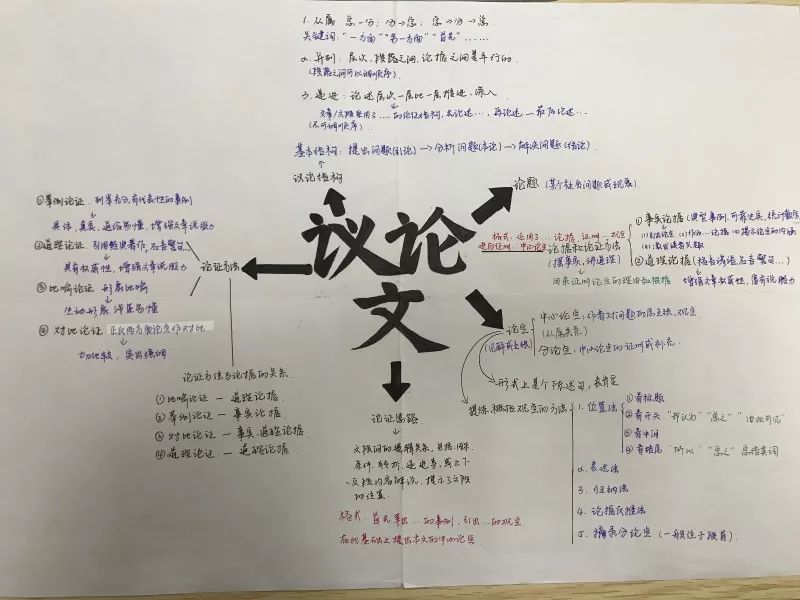 1. 从属 总—分；分→总；总→分→总.
关键词："一方面""另一方面""首先"……
2. 并列：层次、段落之间，论据之间是平行的.
(段落之间可以调顺序).
3. 递进：论述层次一层比一层推进、深入
文章/文段采用了……的论证结构，先论述…，再论述…最后论述…
(不可调顺序)
基本结构：提出问题(引论)→分析问题(本论)→解决问题(结论)
议论结构
议论文
论题 (某个社会问题或现象)
格式：运用了…论据，证明…观点
进而证明…中心论点
论据和论证方法
(摆事实，讲道理)
用来证明论点的理由和根据
①事实论据(典型事例，可靠史实，统计数据)
②道理论据(格言谚语名言警句…)
增强文章权威性，富有说服力
论点
(见解或主张)
中心论点：作者对问题的总主张、观点
(从属关系)
分论点：中心论点的证明或补充.
形式上是个陈述句，表肯定
提炼、概括观点的方法
1. 位置法
①看标题
②看开头 "我认为""总之""由此可见"
③看中间
④看结尾 "所以""总之"总结类词
2. 表达法
3. 归纳法
4. 论据反推法
5. 摘录分论点 (一般位于段首)
论证思路
文段间的逻辑关系，包括：因果
条件、转折、递进等，或上下
文段内容解说，提示了文段
的位置.
格式：首先举出…的事例，引出…的观点
在此基础上提出本文的中心论点
论证方法
①举例论证 列举充分、有代表性的事例
具体、真实、通俗易懂，增强文章说服力
②道理论证 引用经典著作、名言警句
具有权威性，增强文章说服力
③比喻论证 形象比喻
生动形象、浅显易懂
④对比论证 正反两方面论点作对比
力比较，突出强调
论证方法与论据的关系
①比喻论证 — 道理论据
②举例论证 — 事实论据.
③对比论证 — 事实、道理论据.
④道理论证 — 道理论据